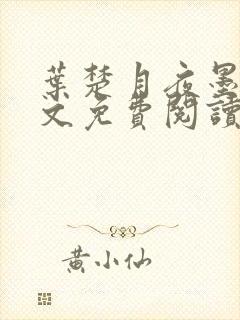 葉楚月夜墨
文免費閱讀
黃小仙